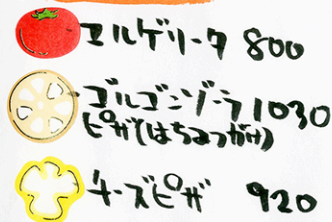 マルゲリータ 800
ゴルゴンゾーラ 1030
ピザ(はちみつがけ)
チーズピザ 920